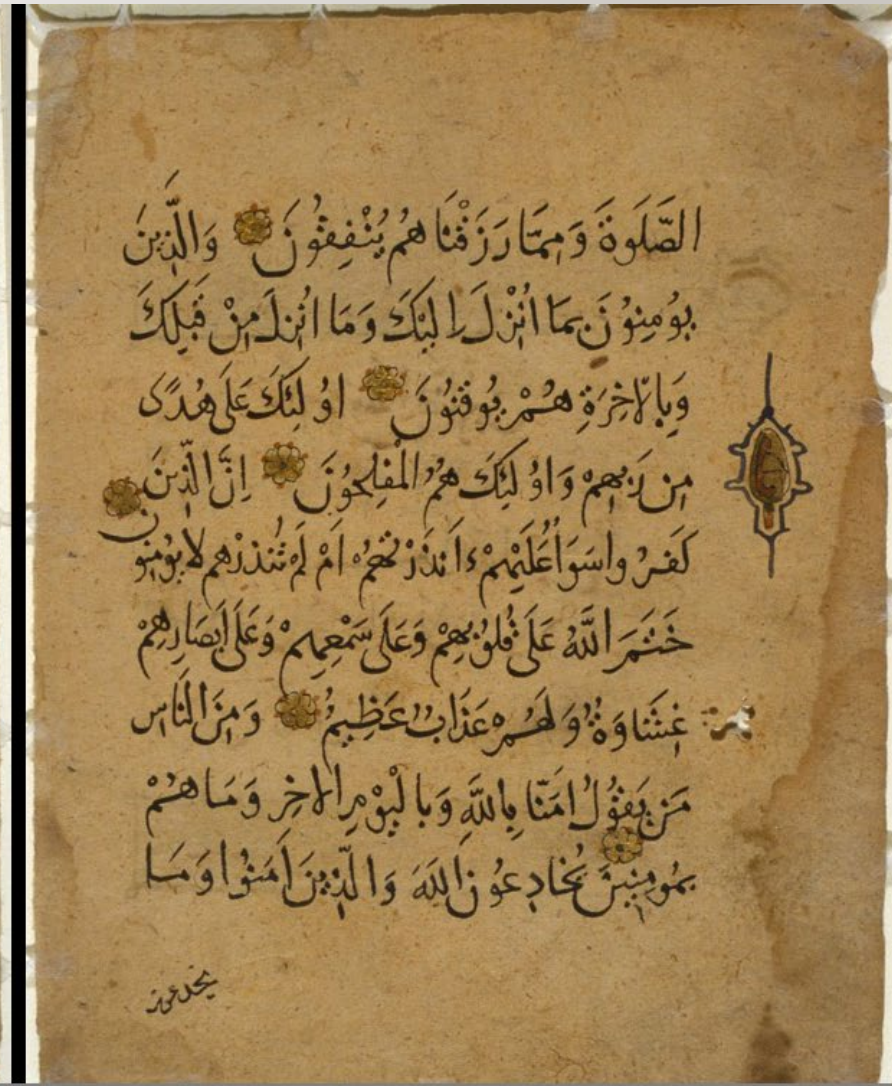 الصَّلَوةَ وَمِمَّا رَزَقْنَا هُمْ يُنْفِقُونَ وَالَّذِينَ
يُومِنوُنَ بِمَا اُنْزِلَ اِلَيْكَ وَمَا اُنْزِلَ مِنْ قَبْلِكَ
وَبِالاخِرَةِ هُمْ يُوقِنُونَ اوُلَئِكَ عَلَى هُدًى
مِن رَبِهِمْ وَاوُلَئِكَ هُمُ الْمُفْلِحُونَ اِنَّ الَّذِينَ
كَفَرُوا سَوَاُ عَلَيْهِمْ ءَاَنْذَرْتَهُمْ اَمْ لَمْ تُنْذِرْهُمْ لَا يُوْمِنُون
خَتَمَ اللَّهُ عَلَى قُلُوبِهِمْ وَعَلَى سَمْعِهِمْ وَعَلَى اَبْصَارِهِمْ
غِشَاوَةٌ وَلَهُمْ عَذَابٌ عَظِيمٌ وَمِنَ النَّاسِ
مَن يَقُولُ امَنَّا بِاللَّهِ وَبِالْيَوْمِ الاخِرِ وَمَا هُمْ
بِمُومِنِينَ يُخَادِعُونَ اللَّهَ وَالَّذِينَ اَمَنُوا وَمَا
يخدعون